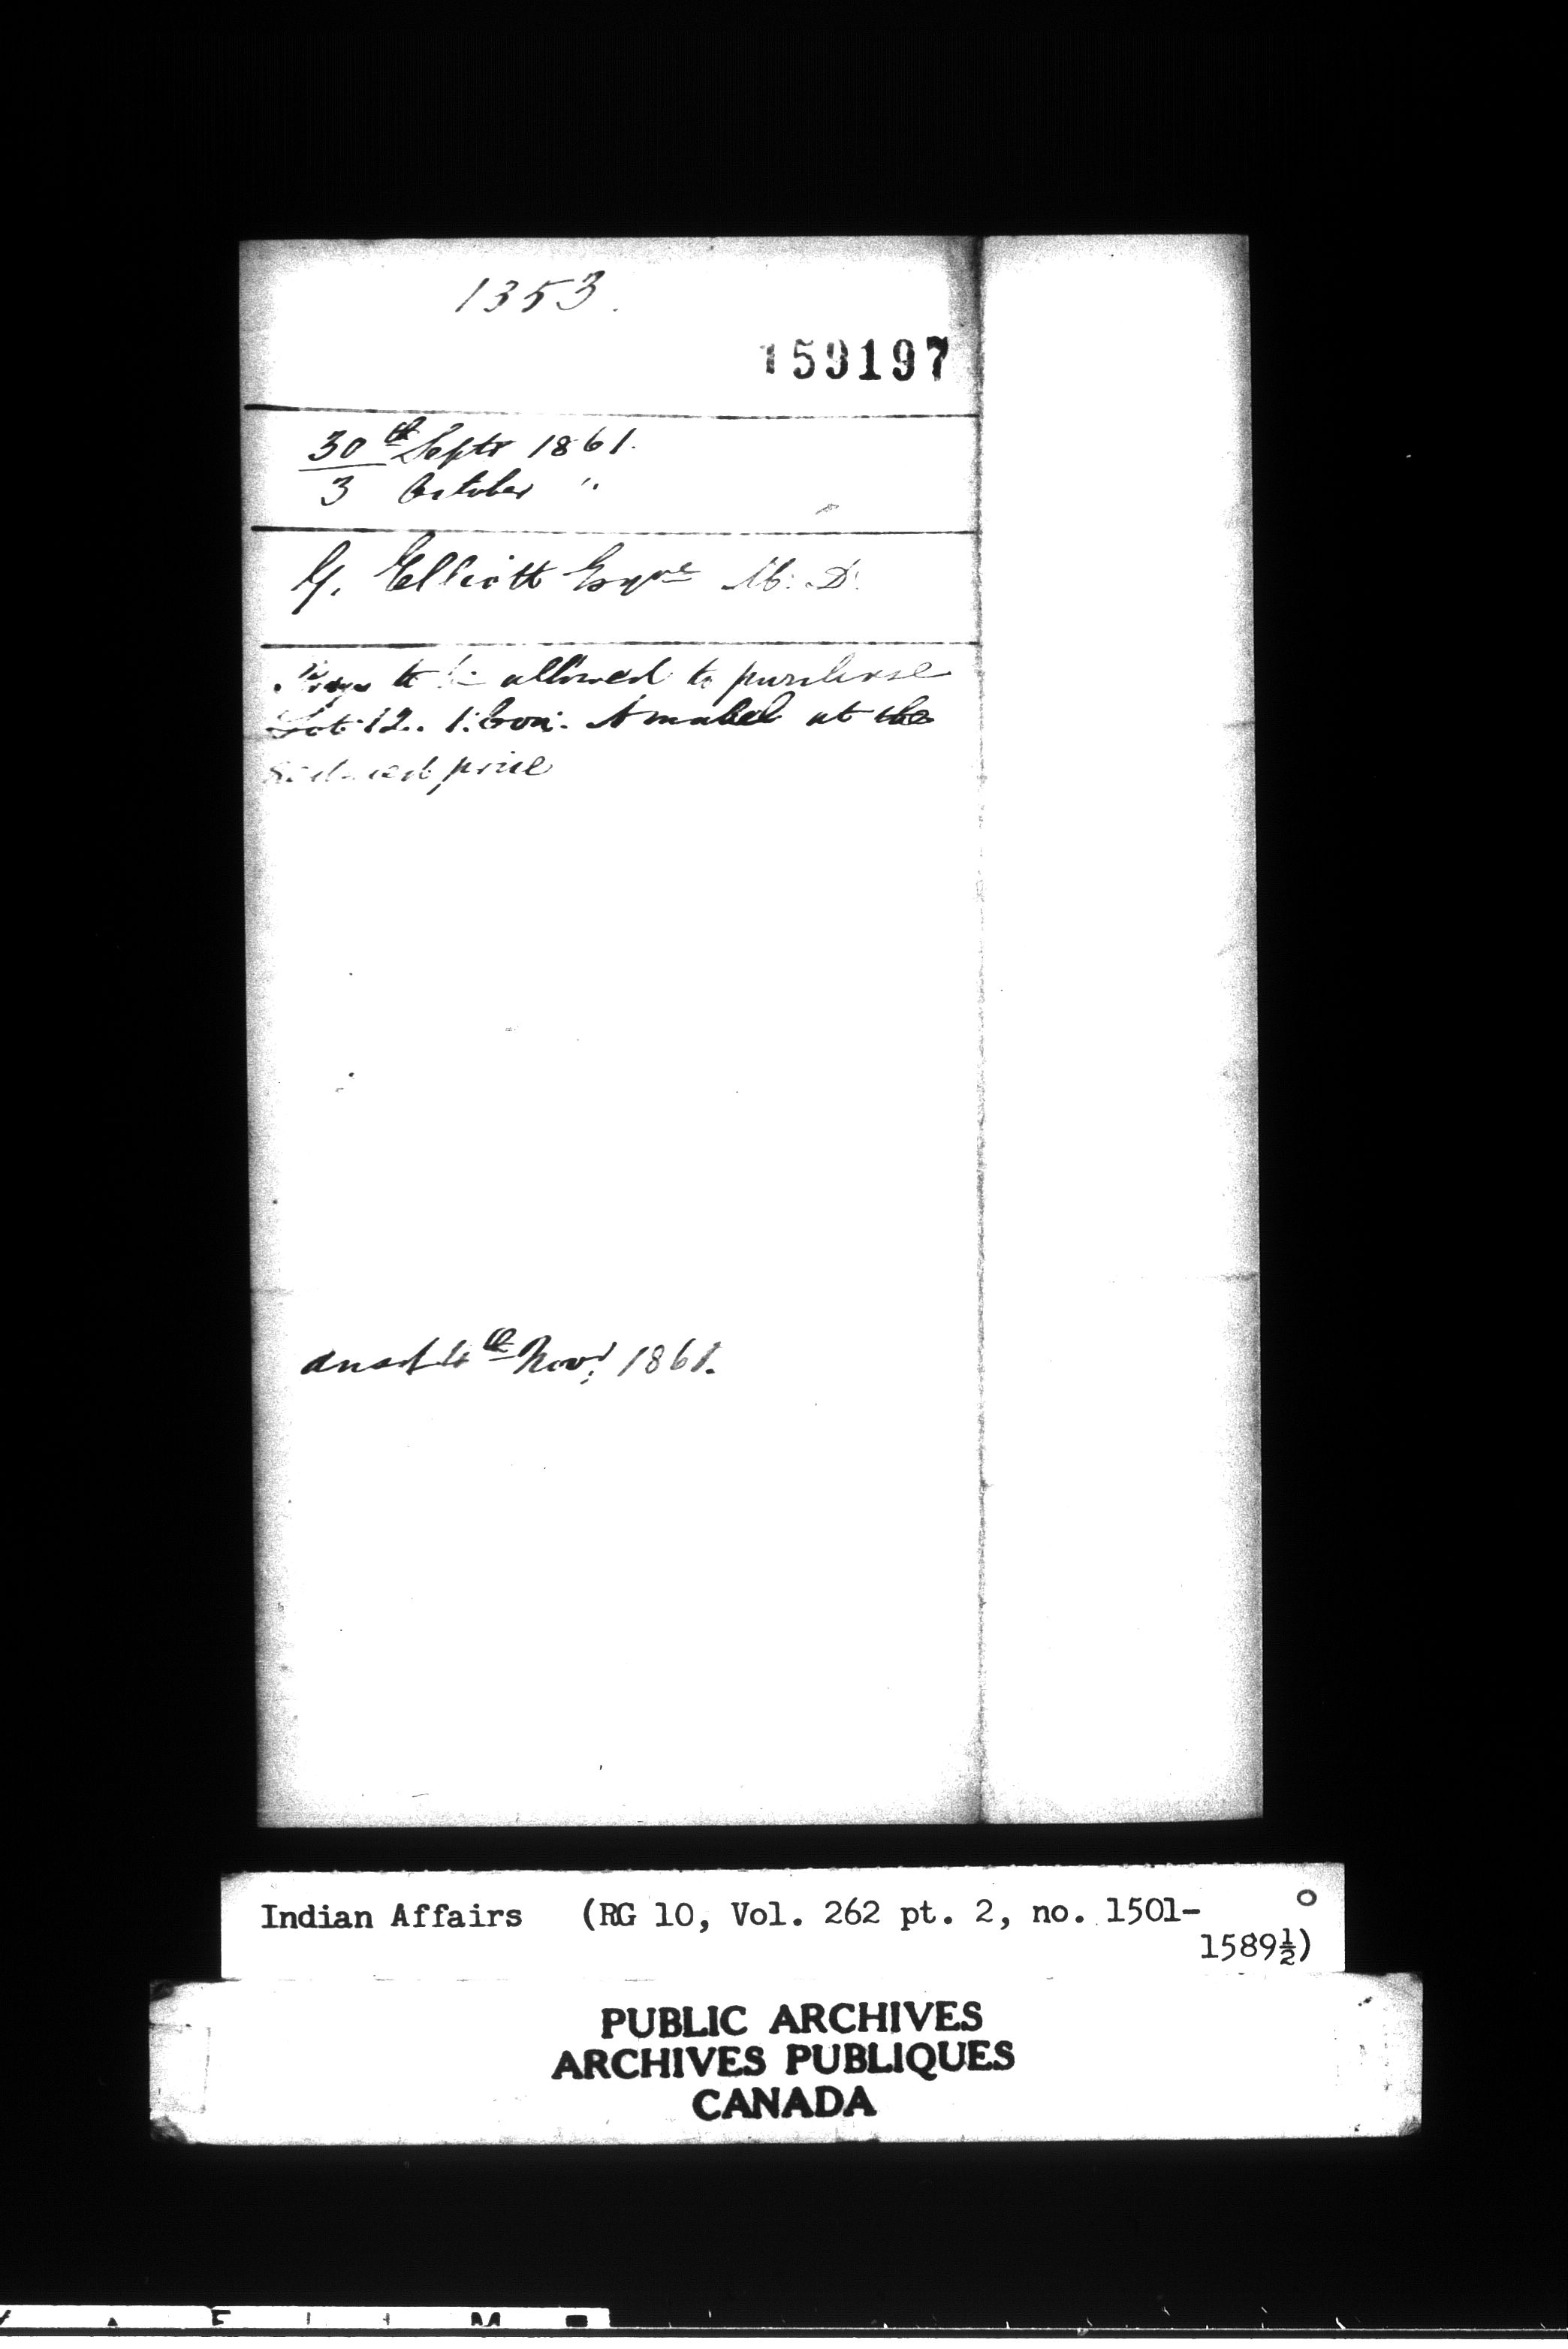 1353.
159197
30th Septr 1861.
3 October "
G. Elliott Esqre M. D.
Prays to be allowed to purchase
Lot 12. 1. Con. Amabel at the
reduced price
ansd 4th Novr 1861.
Indian Affairs (RG 10, Vol. 262 pt. 2, no. 1501-
1589½)
PUBLIC ARCHIVES
ARCHIVES PUBLIQUES
CANADA